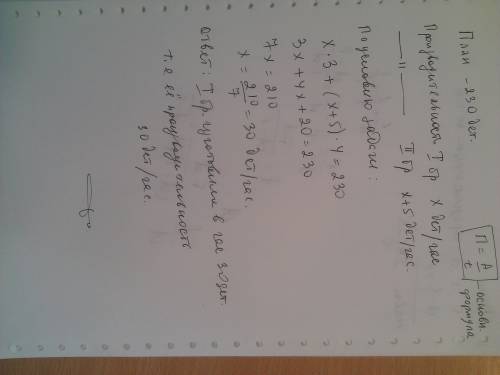 План – 230 дет.
П = A/t – основн. формула
Производительная I бр x дет/час
—— " —— II бр x+5 дет/час.
По условию задачи:
x·3+(x+5)·4=230
3x+4x+20=230
7x=210
x=210/7=30 дет/час.
Ответ: I бр. изготовила в час 30 дет.
т.е её производительность
30 дет/час.